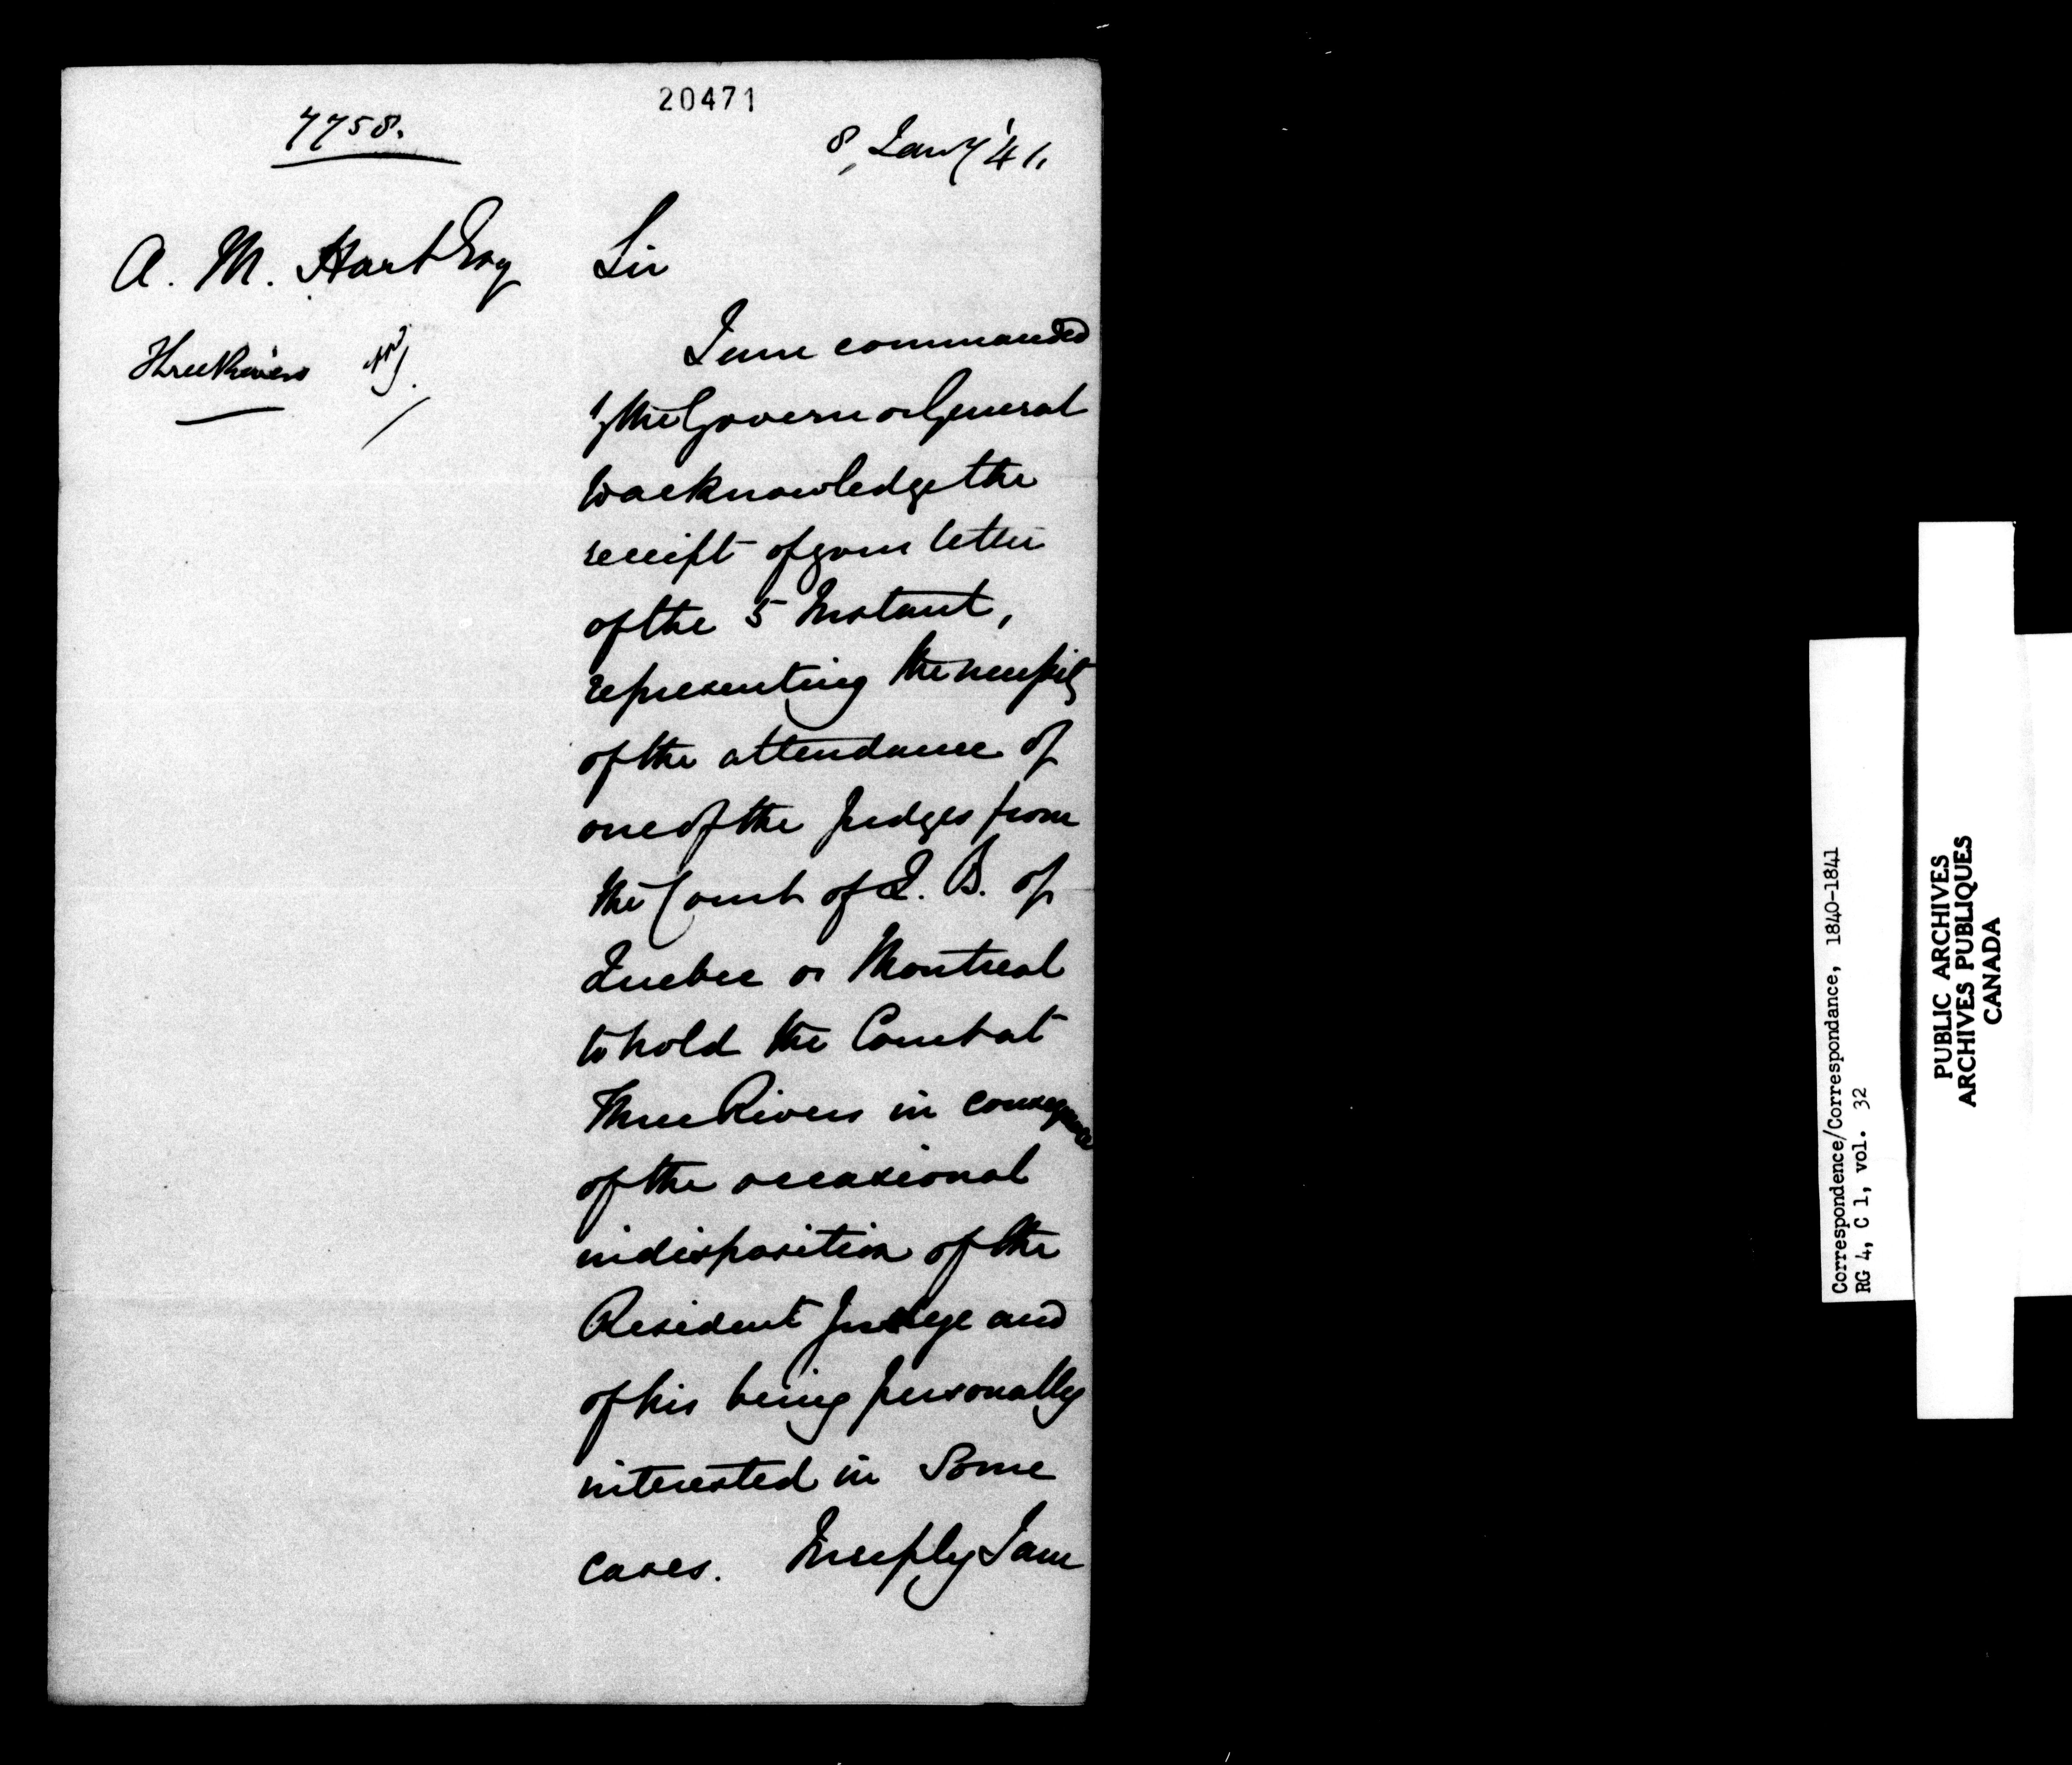 20471
7758.
8, Jany '41,
A. M. Hart Esq
Three Rivers
Sir
I am commanded
by the Governor General
to acknowledge the
receipt of your letter
of the 5 Instant,
representing the necessity
of the attendance of
one of the Judges from
the Court of Q. B. of
Quebec or Montreal
to hold the Court at
Three Rivers in consequence
of the occasional
indisposition of the
Resident Judge and
of his being personally
interested in Some
cases. In reply I am
Correspondence/Correspondance, 1840-1841
RG 4, C 1, vol. 32
PUBLIC ARCHIVES
ARCHIVES PUBLIQUES
CANADA